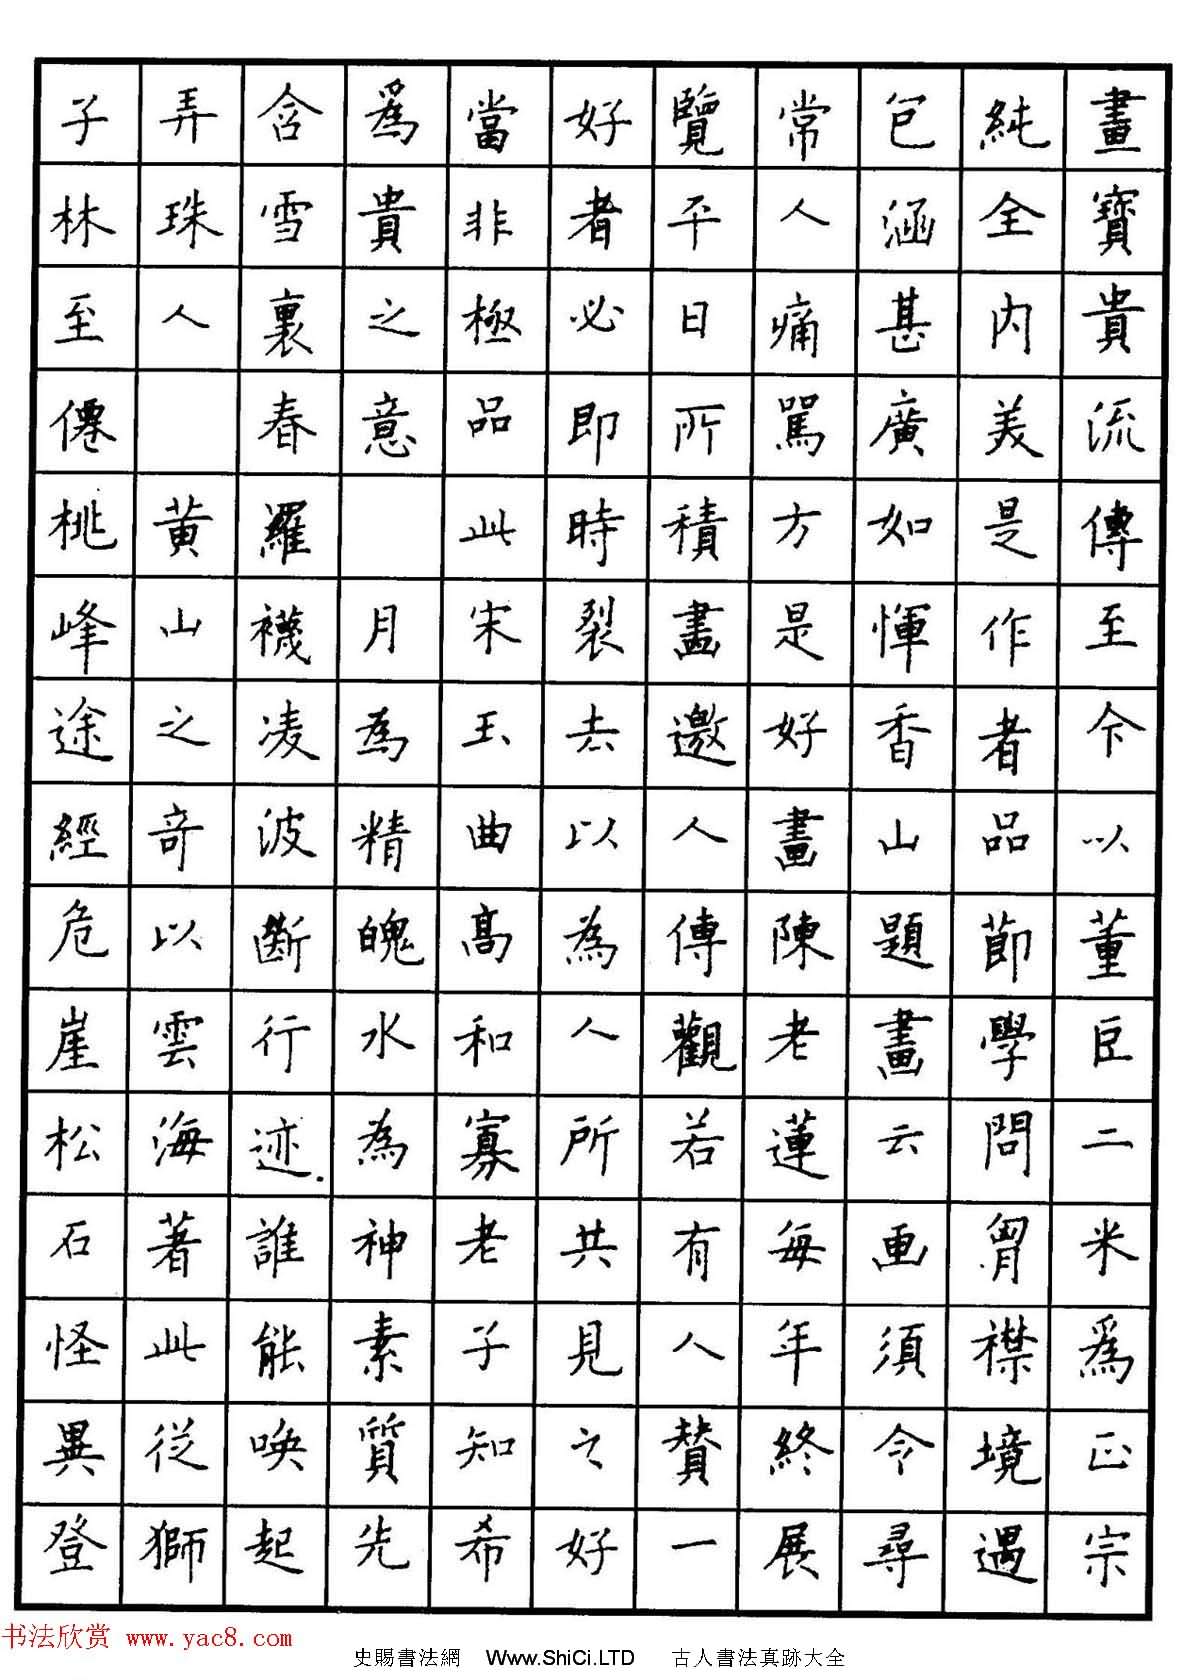 畫寶貴流傳至今以董巨二米爲正宗
純全內美是作者品節學問胷襟境遇
包涵甚廣如惲香山題畫云画須令尋
常人痛駡方是好畫陳老蓮每年終展
覽平日所積畫邀人傳觀若有人贊一
好者必即時裂去以為人所共見之好
當非極品此宋玉曲高和寡老子知希
爲貴之意 月為精魄水為神素質先
含雪裏春羅襪凌波斷行迹.誰能唤起
弄珠人 黄山之奇以雲海著此従獅
子林至僊桃峰途經危崖松石怪異登
书法欣赏 www.yac8.com
史賜書法網 Www.ShiCi.LTD 古人書法真跡大全